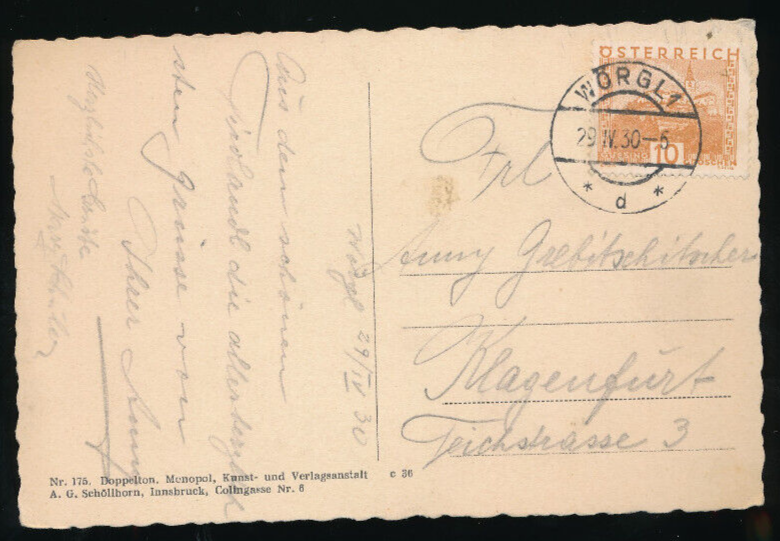 Wörgl 29/IV 30
Aus dem schönen
Tirolandl die allerherzlich
sten Grüsse von
Ihrer Anny
Herzlichste
ÖSTERREICH
GÜSSING 10 GROSCHEN
WÖRGL 1
29.IV.30-6
* d *
Frl
Anny Grebitschitscher
Klagenfurt
Teichstrasse 3
Nr. 175. Doppelton. Monopol, Kunst- und Verlagsanstalt c 36
A. G. Schöllhorn, Innsbruck, Colingasse Nr. 6